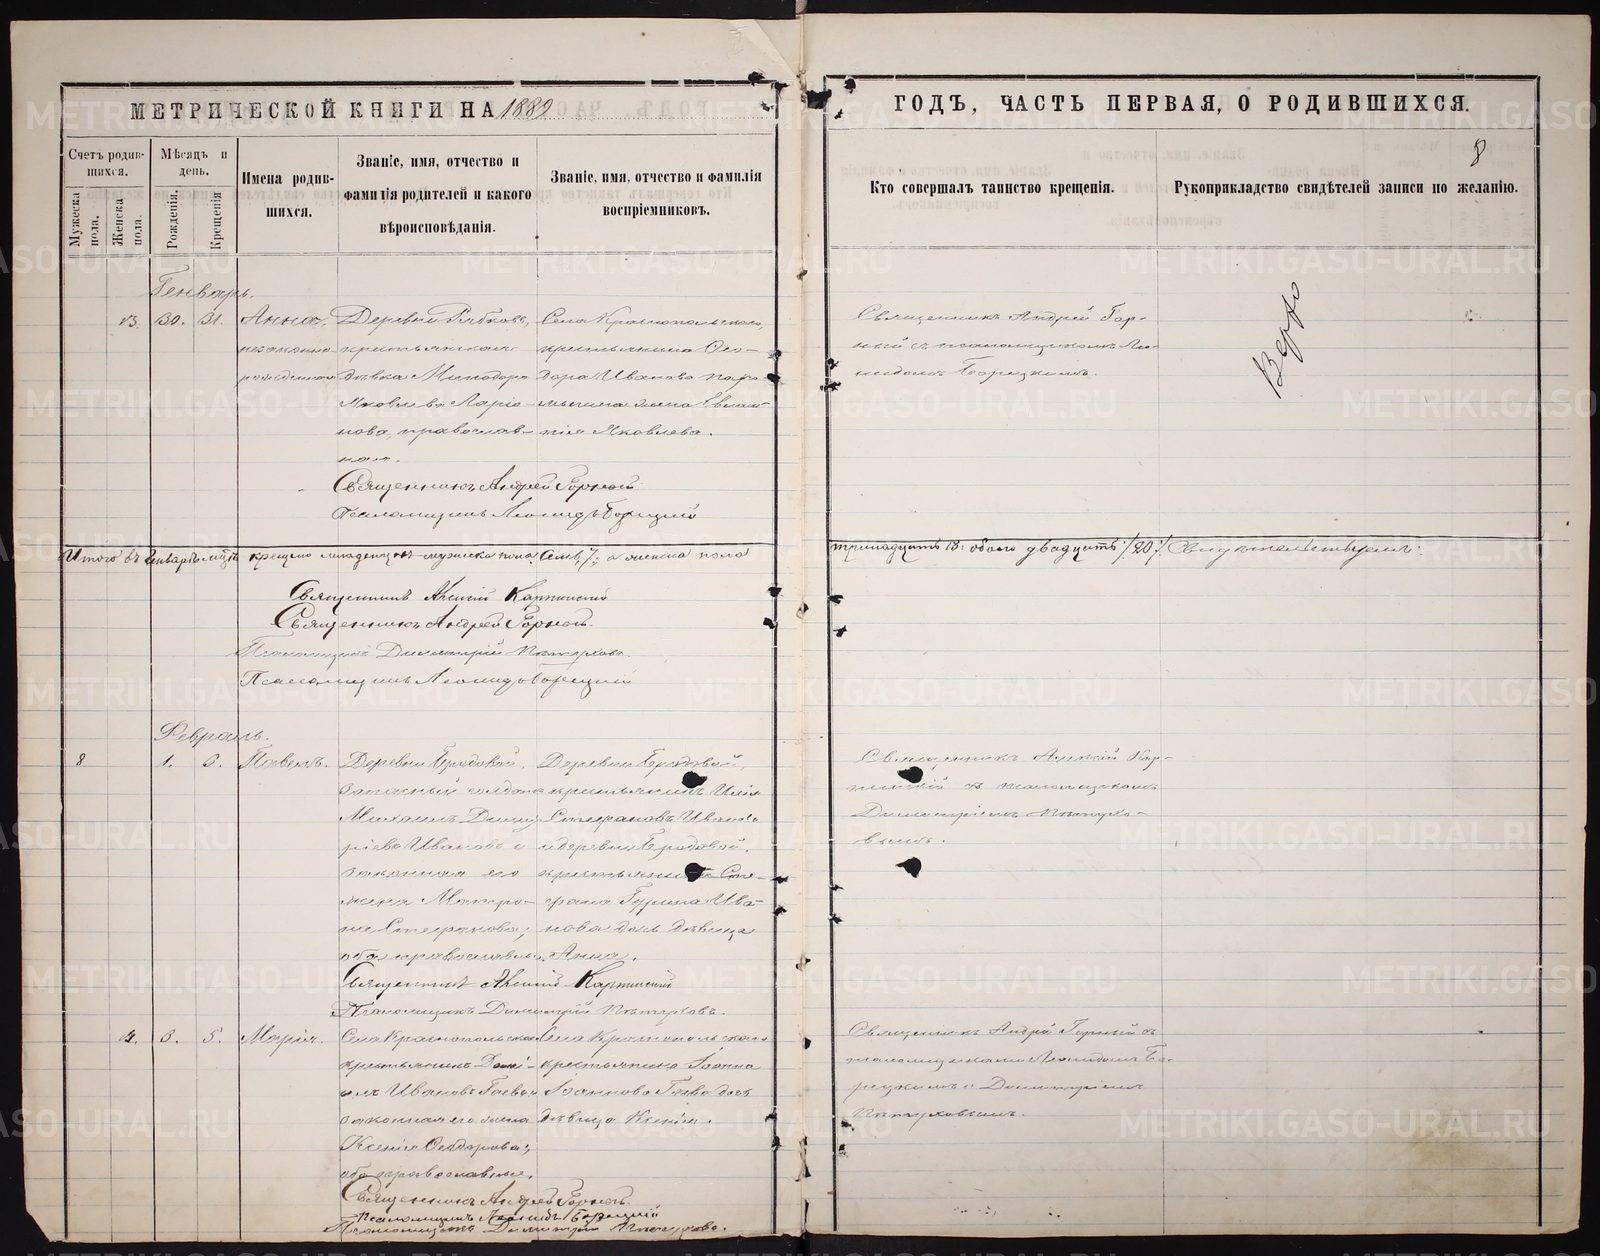 МЕТРИЧЕСКОЙ КНИГИ НА 1889
ГОДЪ, ЧАСТЬ ПЕРВАЯ, О РОДИВШИХСЯ.
8
Счетъ родившихся.
Мужеска пола.
Женска пола.
Мѣсяцъ и день.
Рожденія.
Крещенія
Имена родившихся.
Званіе, имя, отчество и
фамилія родителей и какого
вѣроисповѣданія.
Званіе, имя, отчество и фамилія
воспріемниковъ.
Кто совершалъ таинство крещенія.
Рукоприкладство свидѣтелей записи по желанію.
Генварь.
13. 30. 31. Анна,
незаконно
рожденная
Деревни
крестьянская
дѣвка Минодора
Яковлева Ларіо-
нова, православ-
ная.
Села Краснопольскаго,
крестьянина Ѳео-
дора Иванова
жена Евлам-
пія Яковлева.
Священникъ Андрей Гор-
ный съ псаломщикомъ Лео-
нидомъ Борецкимъ.
Вѣрно
Священникъ Андрей Горной
Псаломщикъ Леонидъ Борецкій
Итого въ Генварѣ м-цѣ крещено младенцевъ мужеска пола семь /7/, а женска пола
тринадцать 13: обоего двадцать /20/. Свидѣтельствуемъ:
Священникъ Алексій Карпинский
Священникъ Андрей Горной.
Псаломщикъ Димитрій Пѣтуховъ.
Псаломщикъ Леонидъ Борецкий
Февраль.
8 1. 3. Павелъ.
Деревни Бродовой,
запасный солдатъ
Михаилъ Димит-
ріевъ Ивановъ и
законная его
жена Матро-
на Стефанова;
оба православны.
Деревни Бродовой,
крестьянинъ Илія
Стефановъ Ивановъ
и деревни Бродовой,
крестьянина Сте-
фана Иванова дочь дѣвица
Анна.
Священникъ Алексій Кар-
пинскій съ псаломщикомъ
Димитріемъ Пѣтухо-
вымъ.
Священникъ Алексій Карпинский
Псаломщикъ Димитрій Пѣтуховъ.
14. 3. 5. Марія.
Села Краснопольскаго
крестьянинъ Дані-
илъ Ивановъ Гаевъ и
законная его жена
Ксенія Ѳеодорова;
оба православные.
Села Краснопольскаго
крестьянина Іоанна
Іоаннова Гаева дочь
дѣвица Ксенія.
Священникъ Андрей Горный съ
псаломщиками Леонидомъ Бо-
рецкимъ и Димитріемъ
Пѣтуховымъ.
Священникъ Андрей Горной.
Псаломщикъ Леонидъ Борецкий
Псаломщикъ Димитрій Пѣтуховъ.
METRIKI.GASO-URAL.RU